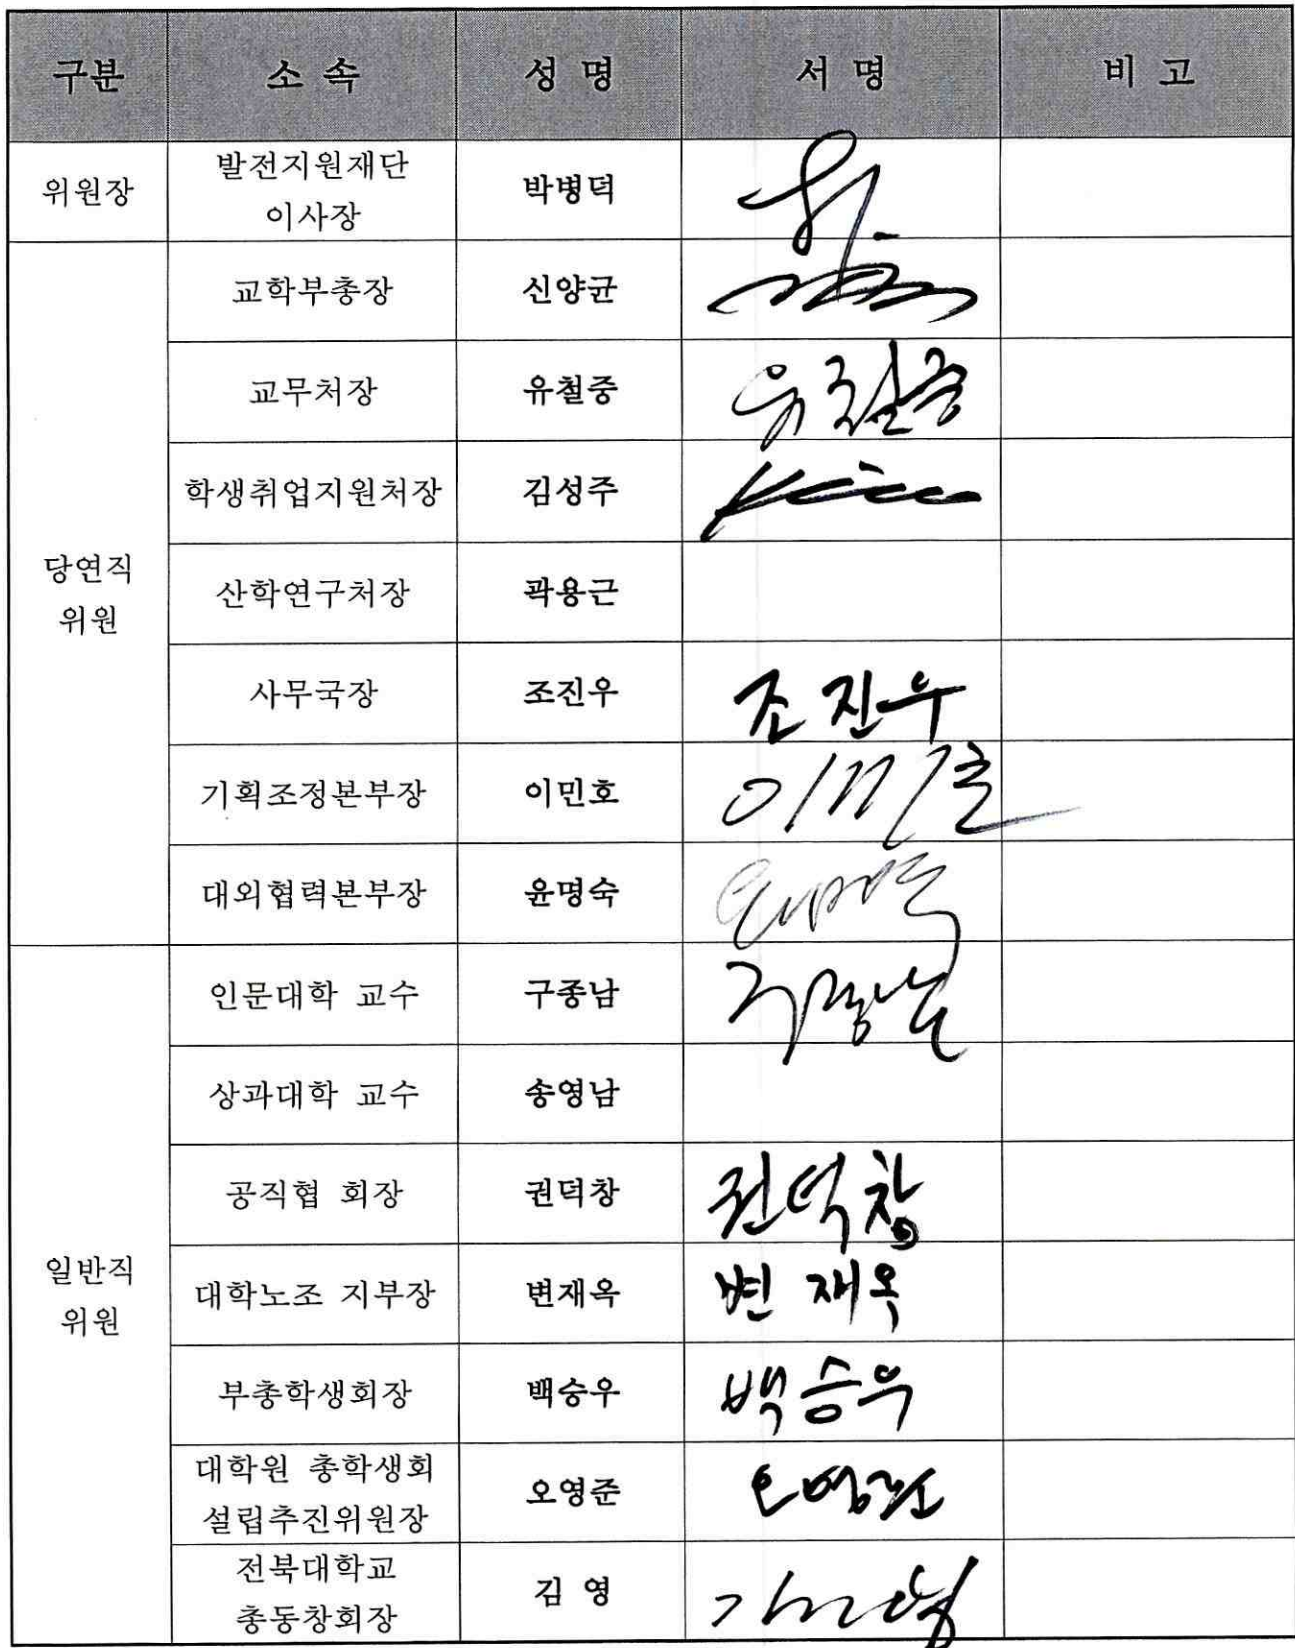 구분 소 속 성 명 서 명 비 고
위원장 발전지원재단 박병덕
이사장
교학부총장 신양균
교무처장 유철중 유철중
학생취업지원처장 김성주
당연직
위원
산학연구처장 곽용근
사무국장 조진우 조진우
기획조정본부장 이민호 이민호
대외협력본부장 윤명숙
인문대학 교수 구종남 구종남
상과대학 교수 송영남
공직협 회장 권덕창 권덕창
일반직
위원
대학노조 지부장 변재옥 변재옥
부총학생회장 백승우 백승우
대학원 총학생회
설립추진위원장 오영준 오영준
전북대학교
총동창회장 김 영 김영